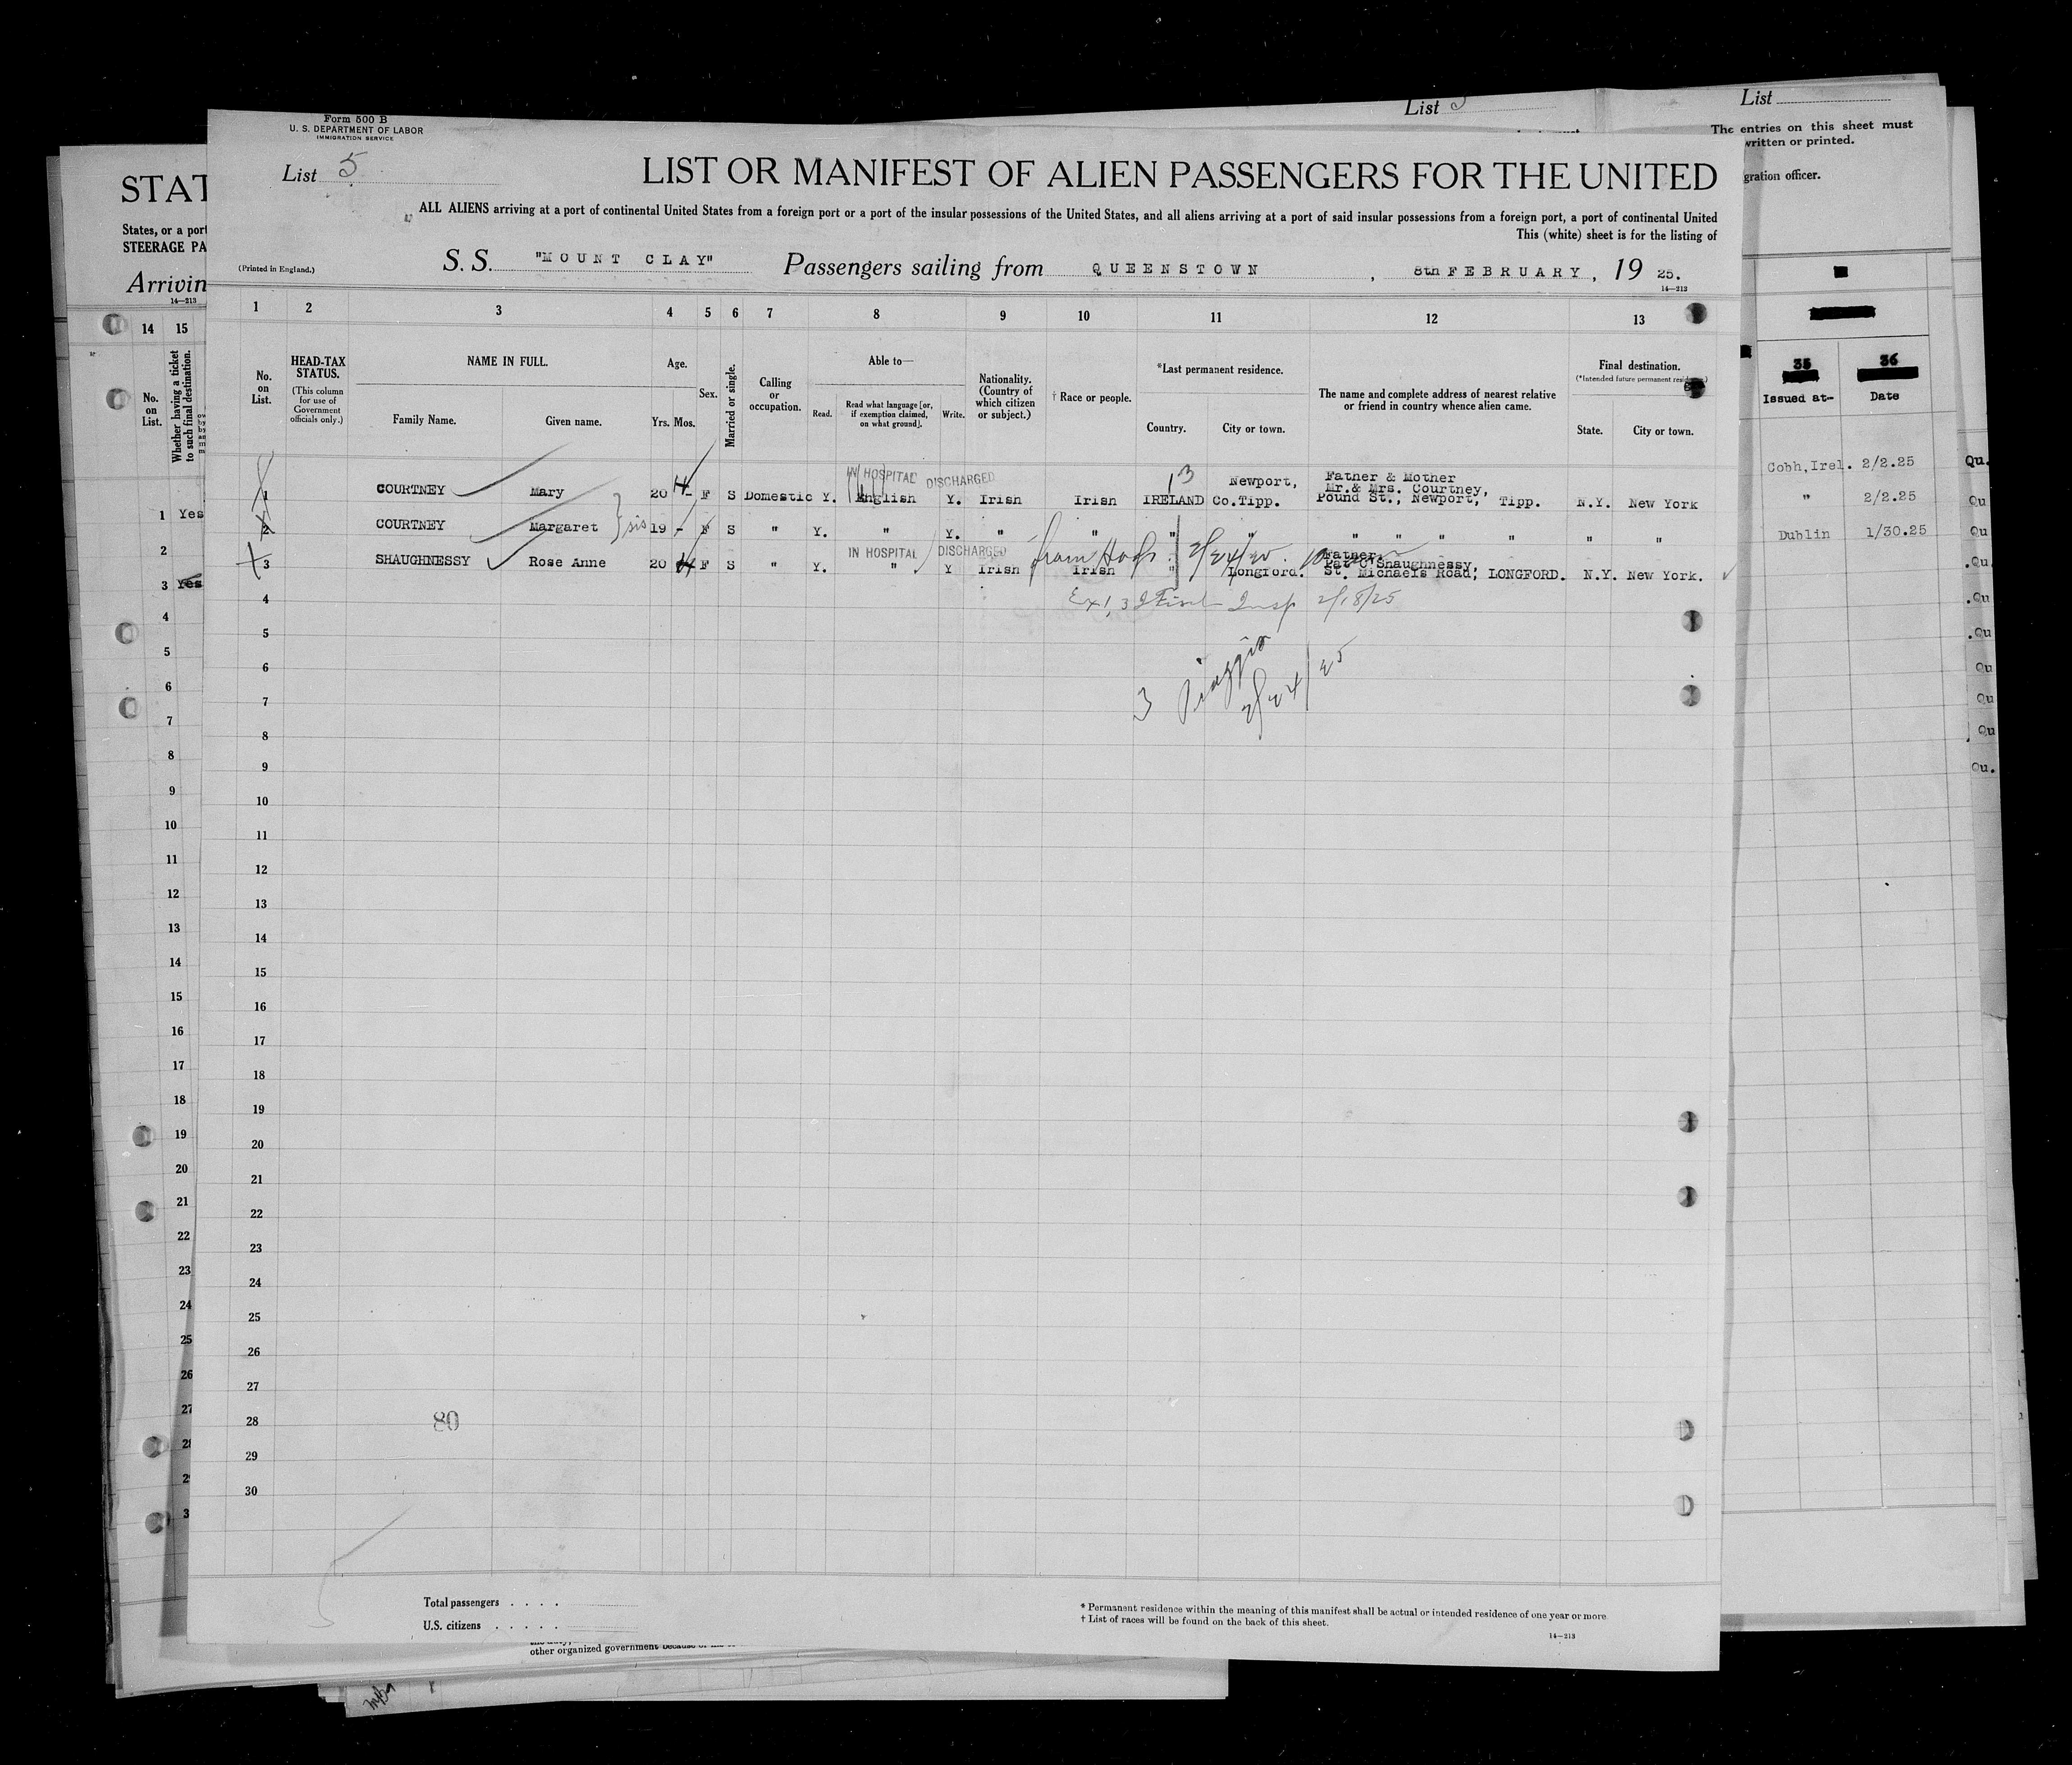 List 5
List
The entries on this sheet must
written or printed.
gration officer.
Form 500 B
U. S. DEPARTMENT OF LABOR
IMMIGRATION SERVICE
List 5
LIST OR MANIFEST OF ALIEN PASSENGERS FOR THE UNITED
STAT
ALL ALIENS arriving at a port of continental United States from a foreign port or a port of the insular possessions of the United States, and all aliens arriving at a port of said insular possessions from a foreign port, a port of continental United
States, or a port
This (white) sheet is for the listing of
STEERAGE PA
(Printed in England.)
S. S. "MOUNT CLAY" Passengers sailing from QUEENSTOWN, 8th FEBRUARY, 19 25.
Arrivin
14—213
14—213
14 15
No. on List.
Whether having a ticket to such final destination.
1 2 3 4 5 6 7 8 9 10 11 12 13
No. on List.
HEAD-TAX STATUS.
(This column for use of Government officials only.)
NAME IN FULL.
Family Name. Given name.
Age.
Yrs. Mos.
Sex.
Married or single.
Calling or occupation.
Able to—
Read. Read what language [or, if exemption claimed, on what ground]. Write.
Nationality. (Country of which citizen or subject.)
† Race or people.
*Last permanent residence.
Country. City or town.
The name and complete address of nearest relative or friend in country whence alien came.
Final destination.
(*Intended future permanent residence)
State. City or town.
35 36
Issued at— Date
IN HOSPITAL DISCHARGED
13
Newport,
Father & Mother
Mr. & Mrs. Courtney,
1 COURTNEY Mary 20 - F S Domestic Y. English Y. Irish Irish IRELAND Co.Tipp. Pound St., Newport, Tipp. N.Y. New York
2 COURTNEY Margaret } sis 19 - F S " Y. " Y. " " " " " " " " " "
IN HOSPITAL DISCHARGED
from Hosp.
Father,
Pat O'Shaughnessy,
3 SHAUGHNESSY Rose Anne 20 F S " Y. " Y Irish Irish " Longford. St. Michaels Road, LONGFORD. N.Y. New York.
Insp 2/18/25
3 Piaggio
2/24/25
4
5
6
7
8
9
10
11
12
13
14
15
16
17
18
19
20
21
22
23
24
25
26
27
28
29
30
80
Cobh,Irel. 2/2.25
" 2/2.25
Dublin 1/30.25
Qu.
Qu
Qu
.Qu
.Qu
.Qu
Qu
Qu
Qu
Qu.
1 Yes
2
3 Yes
4
5
6
7
8
9
10
11
12
13
14
15
16
17
18
19
20
21
22
23
24
25
26
27
Total passengers . . . .
U.S. citizens . . . . .
* Permanent residence within the meaning of this manifest shall be actual or intended residence of one year or more
† List of races will be found on the back of this sheet.
14—213
other organized government because of